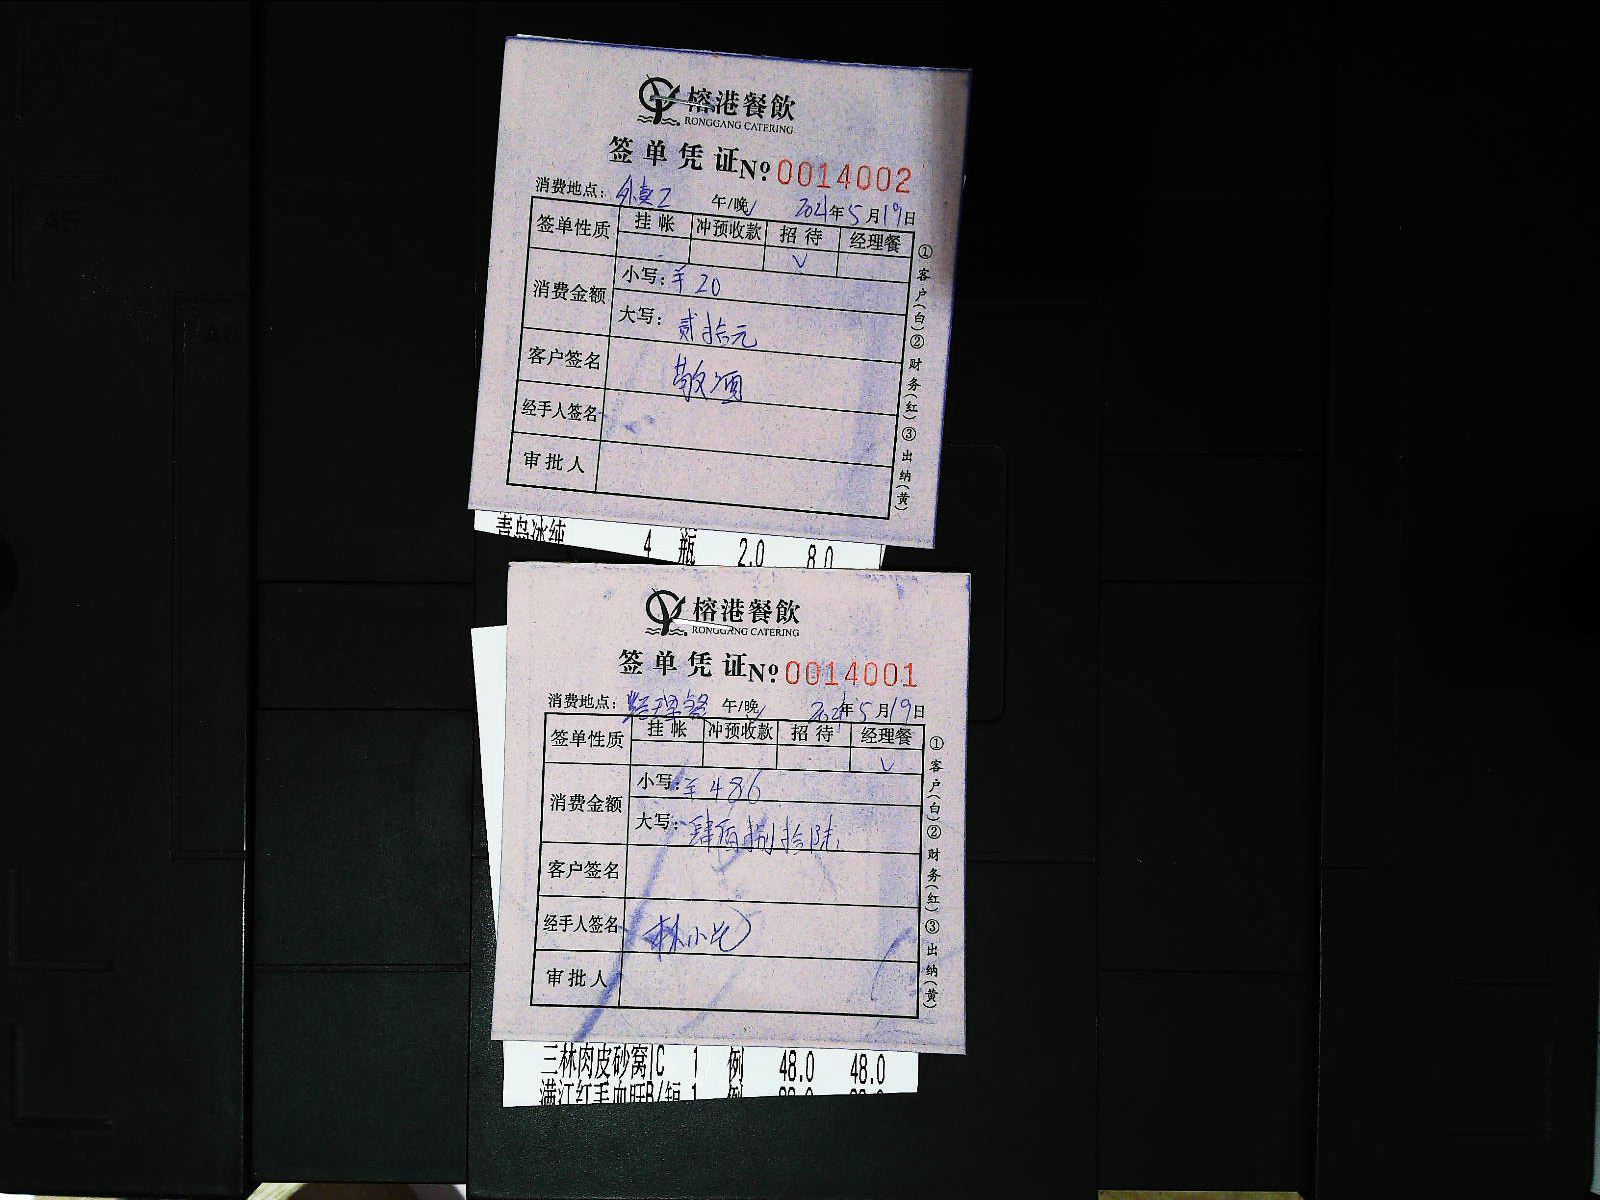 榕港餐飲
RONGGANG CATERING
签单凭证 Nº 0014002
消费地点: 外卖2 午/晚√ 2021年5月19日
签单性质 挂帐 冲预收款 招待 经理餐
√
消费金额 小写: ¥20
大写: 贰拾元
客户签名
经手人签名
审批人
①客户(白)②财务(红)③出纳(黄)
青岛冰纯 4 瓶 2.0 8.0
榕港餐飲
RONGGANG CATERING
签单凭证 Nº 0014001
消费地点: 经理餐 午/晚√ 2021年5月19日
签单性质 挂帐 冲预收款 招待 经理餐
√
消费金额 小写: ¥486
大写: 肆佰捌拾陆
客户签名
经手人签名 林小
审批人
①客户(白)②财务(红)③出纳(黄)
三林肉皮砂窝/C 1 例 48.0 48.0
满江红毛血旺B/ 1 例